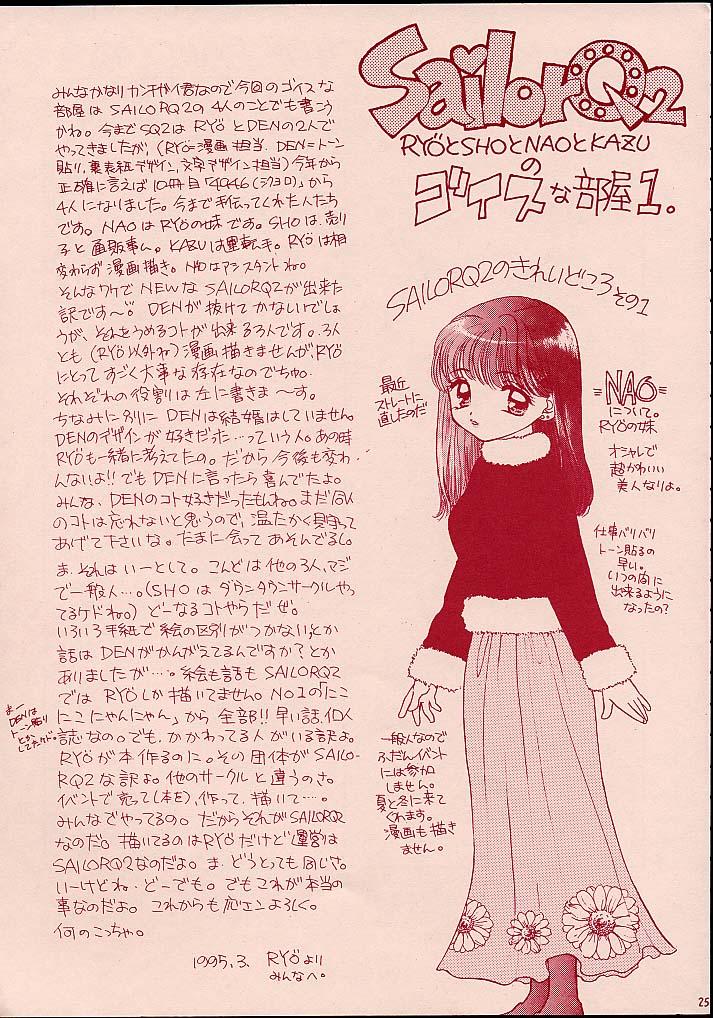 SailorQ2
RYÖとSHOとNAOとKAZU
の
ゴイスな部屋1。
みんなかなりカンチガイ君なので今回のゴイスな
部屋はSAILORQ2の4人のことでも書こう
かね。今までSQ2はRYÖとDENの2人で
やってきましたが、(RYÖ=漫画担当 DEN=トーン
貼り、裏表紙デザイン、文字デザイン担当)今年から
正確に言えば10冊目「4946(シクヨロ)」から
4人になりました。今まで手伝ってくれた人たち
です。NAOはRYÖの妹です。SHOは、売り
子と通販事ム。KAZUは運転手。RYÖは相
変わらず漫画描き。NAOはアシスタントね。
そんなワケでNEWなSAILORQ2が出来た
訳です〜。DENが抜けてかないでしょ
うが、それをうめるコトが出来る3人です。3人
とも(RYÖ以外ね)漫画描きませんがRYÖ
にとってすごく大事な存在なのでちゅ。
それぞれの役割は左に書きま〜す。
ちなみに別にDENは結婚はしていません。
DENのデザインが好きだった…っていう人。あの時
RYÖも一緒に考えてたの。だから今後も変わ
んないよ!!でもDENに言ったら喜んでたよ。
みんな、DENのコト好きだったもんね。まだ
のコトは忘れないと思うので、温たかく見守って
あげて下さいな。たまに会ってあそんでるし。
ま、それはいーとして。こんどは他の3人、マジ
で一般人…。(SHOはダウンタウンサークルやっ
てるケドね。)どーなるコトやらだぜ。
いろいろ手紙で絵の区別がつかないとか
話はDENがかんがえてるんですか?とか
ありましたが…。絵も話もSAILORQ2
ではRYÖしか描いてません。NO1の「にこ
にこにゃんにゃん」から全部!!早い話、個人
誌なの。でも、かかわってる人がいる訳よ。
RYÖが本作るのに。その団体がSAILO-
RQ2な訳よ。他のサークルと違うのさ。
イベントで売って(本を)、作って、描いて…。
みんなでやってるの。だからそれがSAILORQ2
なのだ。描いてるのはRYÖだけど運営は
SAILORQ2なのだよ。ま、どうとっても同じさ。
いーけどね。どーでも。でもこれが本当の
事なのだよ。これからも応エンよろしく。
何のこっちゃ。
1995.3. RYÖより
みんなへ。
まー
DENは
トーン貼り
とか
してたケド。
SAILORQ2のきれいどころその1
最近
ストレートに
直したのだ
=NAO=
について。
RYÖの妹
オシャレで
超かわいい
美人なりよ。
仕事バリバリ
トーン貼るの
早い。
いつの間に
出来るように
なったの?
一般人なので
ふだんイベント
には参加
しません。
夏と冬に来て
くれます。
漫画も描き
ません。
25